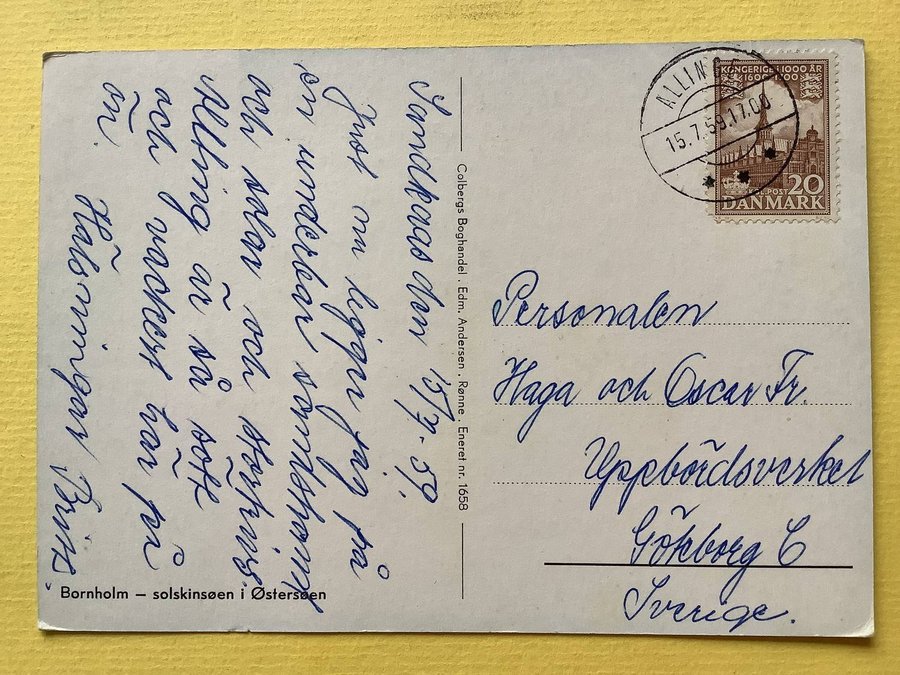 Sandkaas den 15/7-59.
Just nu ligger jag på
en underbar sandstrand
och solar och
Allting är så sött
och vackert här på
ön.
Hälsningar Britt
Colbergs Boghandel . Edm. Andersen . Rønne . Eneret nr. 1658
Bornholm – solskinsøen i Østersøen
ALLIN
15.7.59.17.00
KONGERIGE I 1000 ÅR
POST 20
DANMARK
Personalen
Haga och Oscar Fr.
Uppbördsverket
Göteborg C
Sverige.